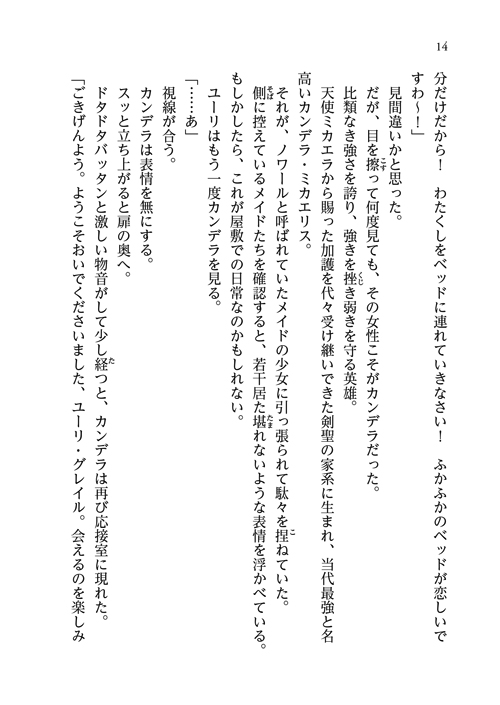 14
分だけだから！　わたくしをベッドに連れていきなさい！　ふかふかのベッドが恋しいで
すわ～！」
見間違いかと思った。
だが、目を擦って何度見ても、その女性こそがカンデラだった。
比類なき強さを誇り、強きを挫き弱きを守る英雄。
天使ミカエラから賜った加護を代々受け継いできた剣聖の家系に生まれ、当代最強と名
高いカンデラ・ミカエリス。
それが、ノワールと呼ばれていたメイドの少女に引っ張られて駄々を捏ねていた。
側に控えているメイドたちを確認すると、若干居た堪れないような表情を浮かべている。
もしかしたら、これが屋敷での日常なのかもしれない。
ユーリはもう一度カンデラを見る。
「……あ」
視線が合う。
カンデラは表情を無にする。
スッと立ち上がると扉の奥へ。
ドタドタバッタンと激しい物音がして少し経つと、カンデラは再び応接室に現れた。
「ごきげんよう。ようこそおいでくださいました、ユーリ・グレイル。会えるのを楽しみ